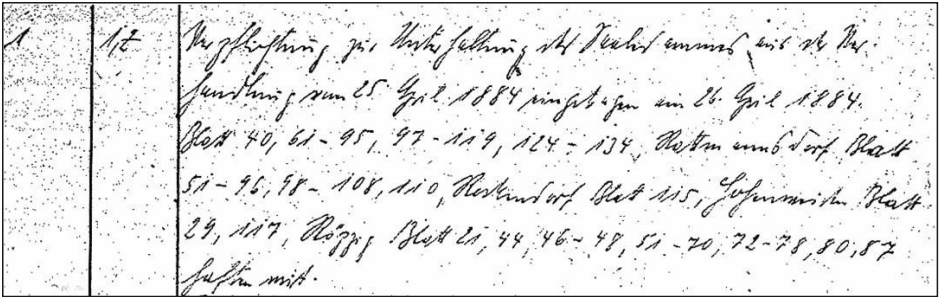 1 1,2 Verpflichtung zur Unterhaltung des Saaledammes aus der Ver-
handlung vom 25. April 1884 eingetragen am 26. April 1884.
Blatt 40, 61-95, 97-119, 124-134, Rattmannsdorf Blatt
51-96, 98-108, 110, Rockendorf Blatt 115, Hohenweiden Blatt
29, 117, Röpzig Blatt 21, 44, 46-48, 51-70, 72-78, 80, 87
haften mit.